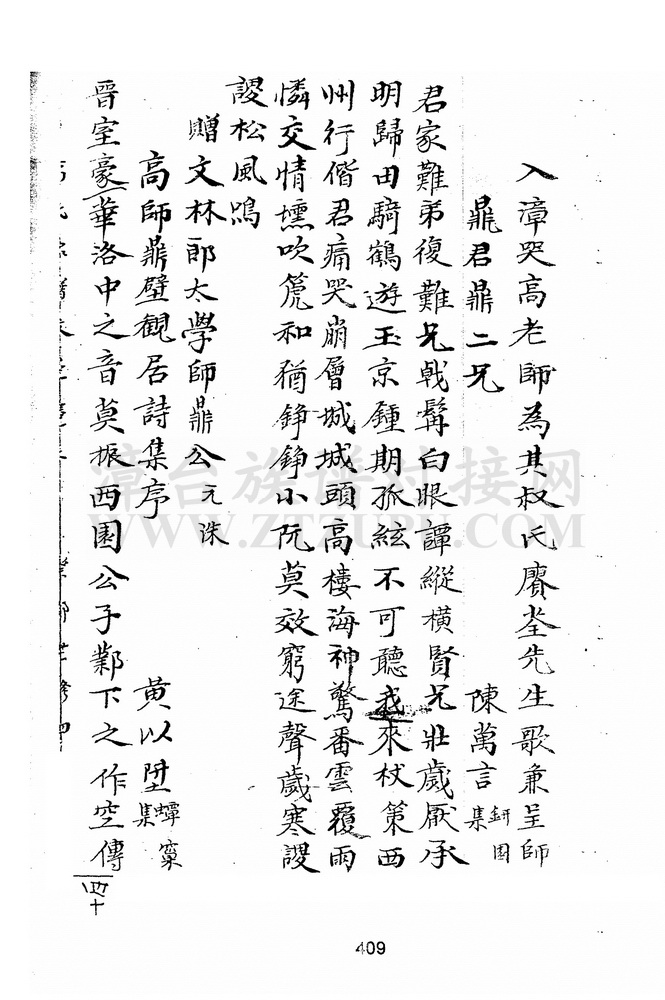 入漳哭高老師為其叔氏賡荃先生歌兼呈師
鼎君鼎二兄 陳萬言 研園集
君家難弟復難兄戟髯白眼譚縱橫賢兄壯歲厭承
明歸田騎鶴遊玉京鍾期孤絃不可聽我來杖策西
州行偕君痛哭崩層城城頭高樓海神驚番雲覆雨
憐交情壎吹篪和猶錚錚小阮莫效窮途聲歲寒謖
謖松風鳴
贈文林郎太學師鼎公元洙
高師鼎壁觀居詩集序 黃以陞 蟫窠集
晉室豪華洛中之音莫振西園公子鄴下之作空傳
四十
409
漳台族谱对接网
WWW.ZTZUPU.COM